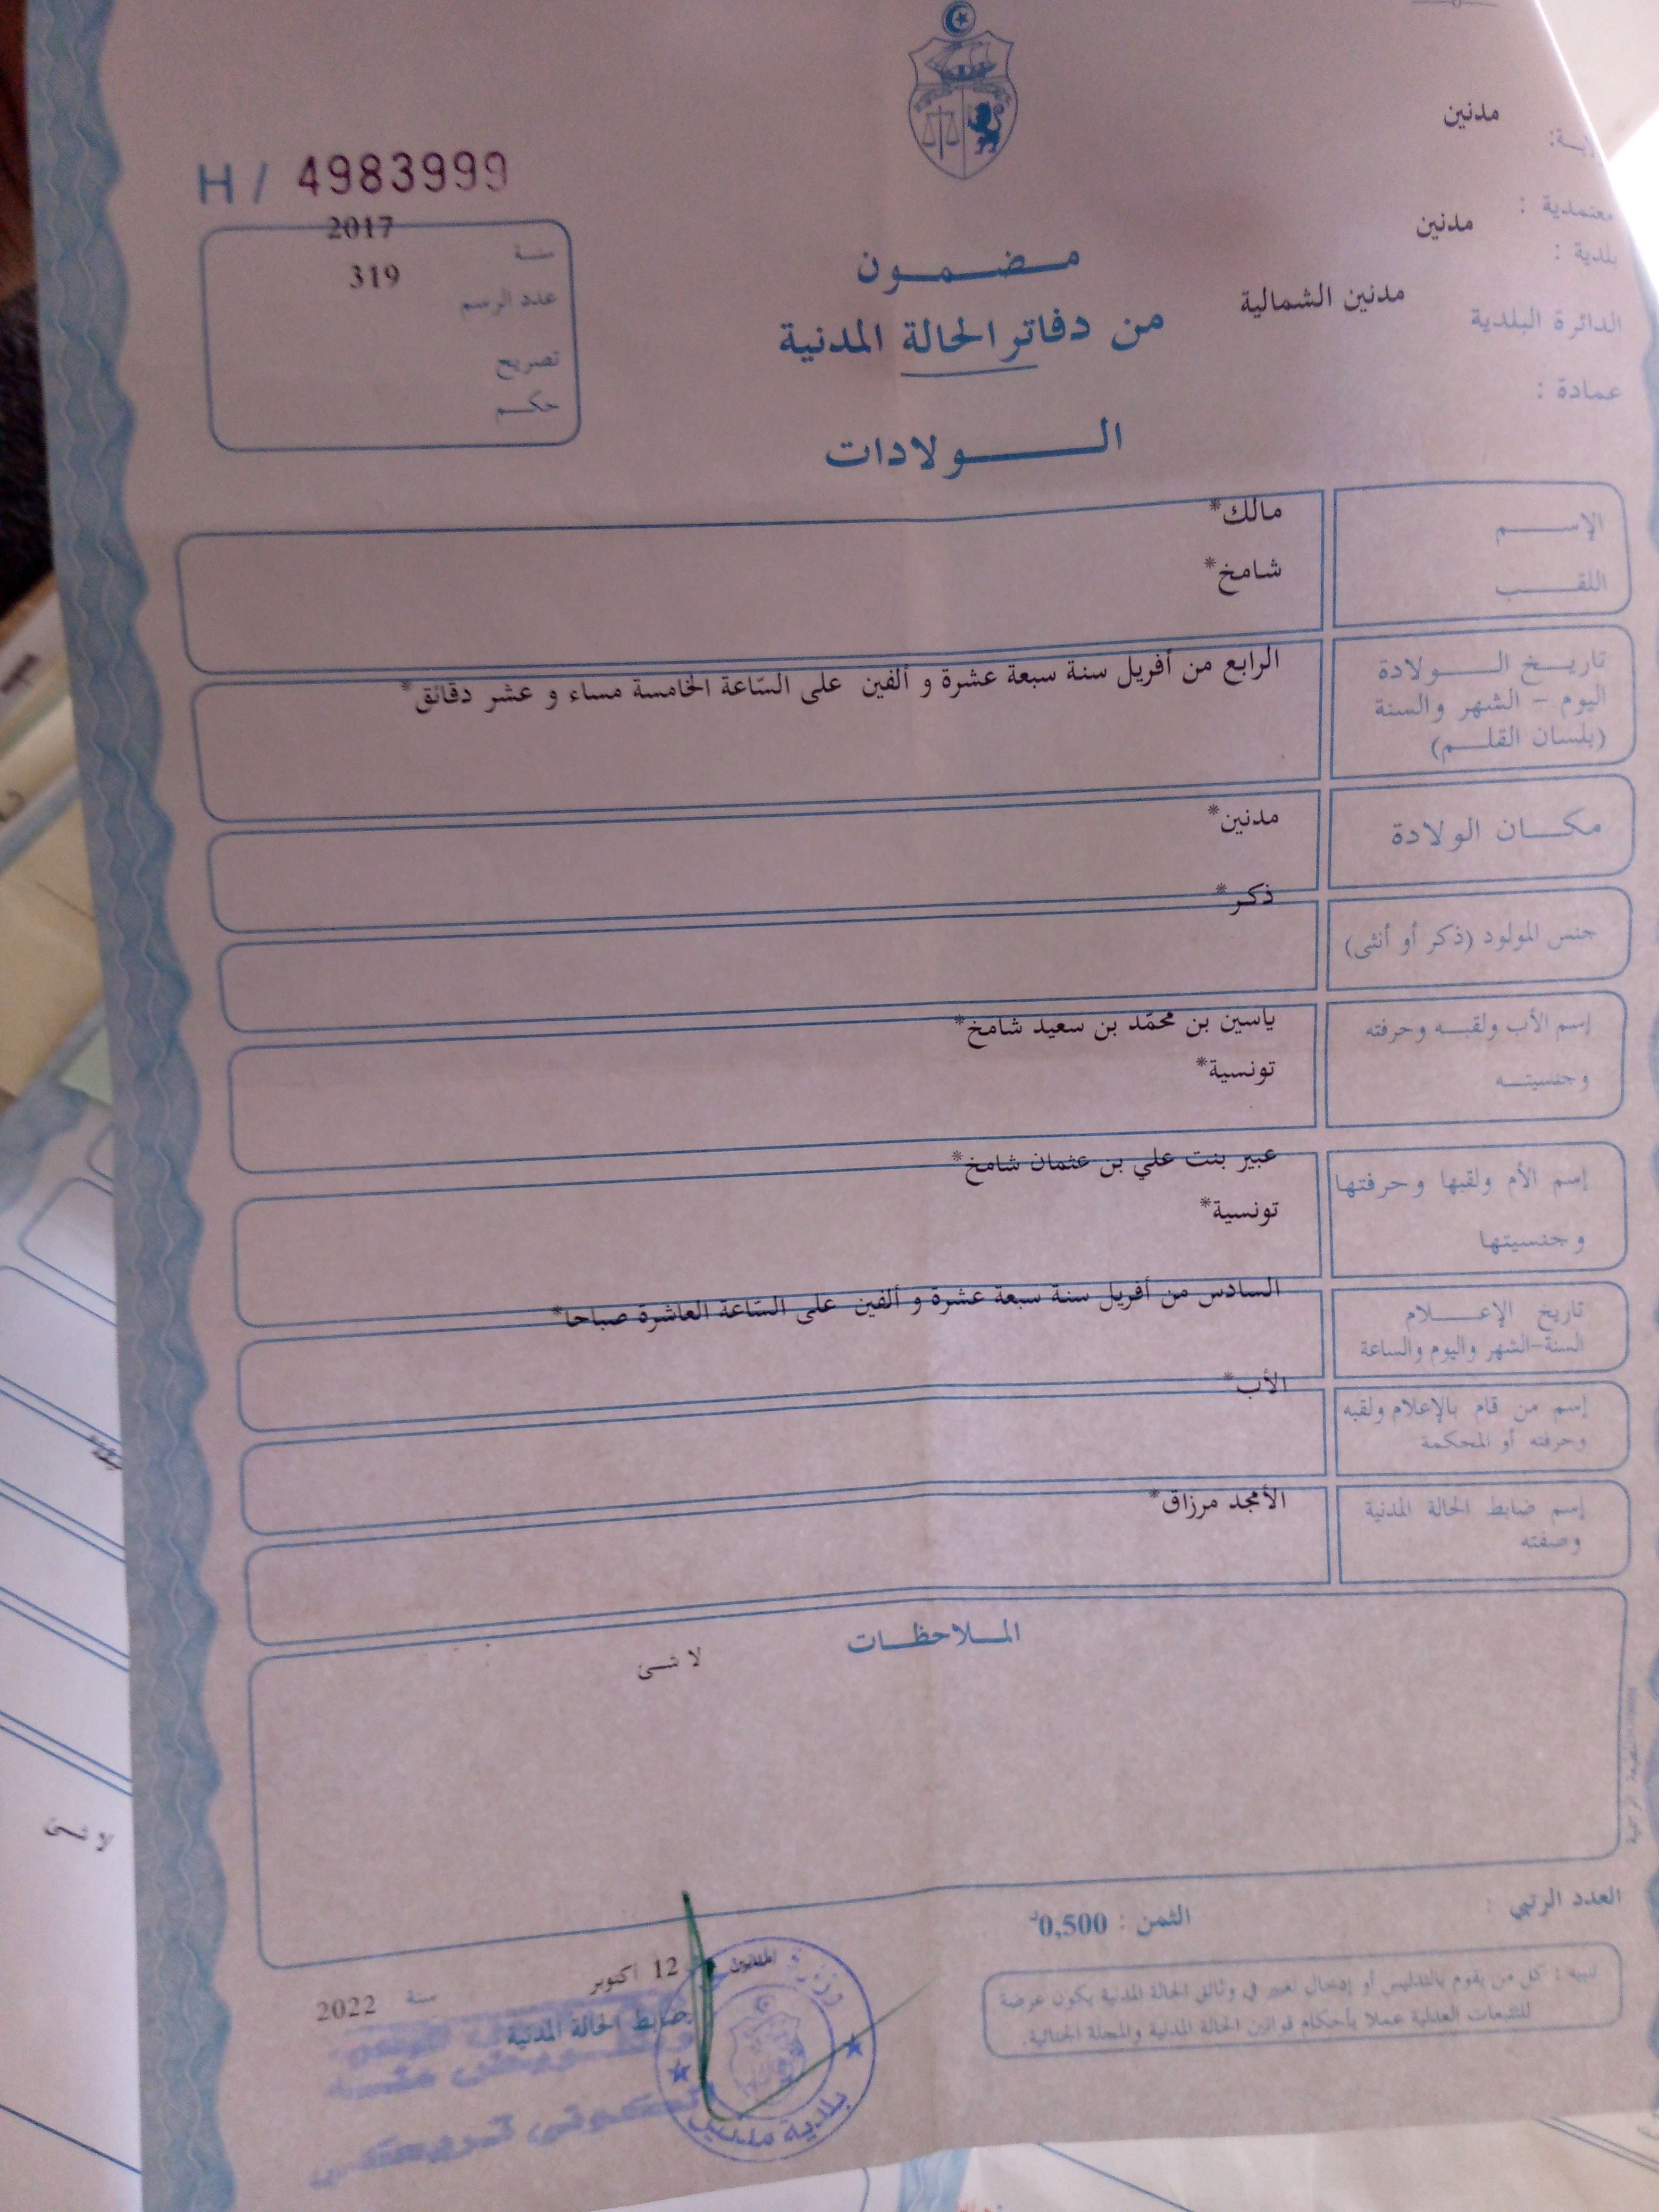 H / 4983999
سنة 2017
عدد الرسم 319
تصريح
حكم
مدنين
معتمدية : مدنين
بلدية :
الدائرة البلدية مدنين الشمالية
عمادة :
مضمون
من دفاتر الحالة المدنية
الولادات
الإسم مالك*
اللقب شامخ*
تاريخ الولادة الرابع من أفريل سنة سبعة عشرة و ألفين على السّاعة الخامسة مساء و عشر دقائق*
اليوم - الشهر والسنة
(بلسان القلم)
مكان الولادة مدنين*
جنس المولود (ذكر أو أنثى) ذكر*
إسم الأب ولقبه وحرفته ياسين بن محمّد بن سعيد شامخ*
وجنسيته تونسية*
إسم الأم ولقبها وحرفتها عبير بنت علي بن عثمان شامخ*
وجنسيتها تونسية*
تاريخ الإعلام السادس من أفريل سنة سبعة عشرة و ألفين على السّاعة العاشرة صباحا*
السنة-الشهر واليوم والساعة
إسم من قام بالإعلام ولقبه الأب*
وحرفته أو المحكمة
إسم ضابط الحالة المدنية الأمجد مرزاق*
وصفته
الملاحظات
لا شئ
العدد الرتبي :
الثمن : 0,500د
تنبيه : كل من يقوم بالتدليس أو إدخال تغيير في وثائق الحالة المدنية يكون عرضة
للتتبعات العدلية عملا بأحكام قوانين الحالة المدنية والمجلة الجنائية.
12 أكتوبر سنة 2022
ضابط الحالة المدنية
بلدية مدنين
لا شئ